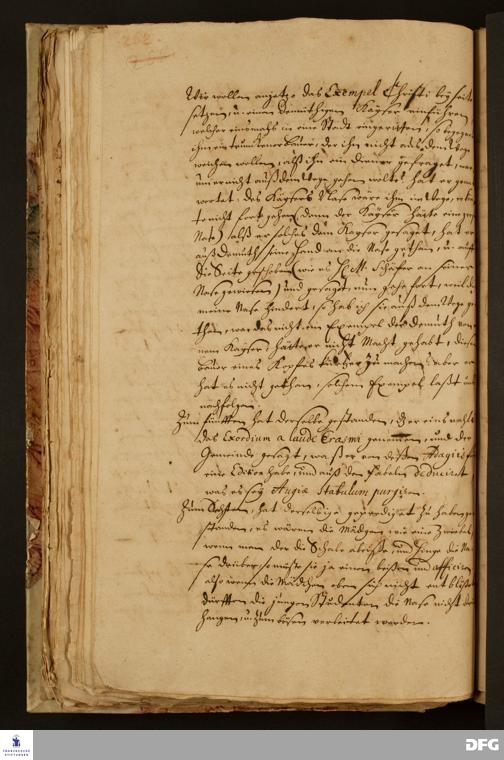 262
Wir wollen anjetzo das Exempel Christi beÿ seite
setzen, u. einen demüthigen Kaÿser einführen
welcher einsmahls in eine Stadt eingeritten, so begegnet
ihm ein trunckener Bauer, der ihm nicht aus dem Wege
weichen wollen, alß ihn ein Diener gefraget, war
umb er nicht auß dem Wege gehen wolte, hat er geant
wortet, des Kaÿsers Nase wäre ihm im Wege, er kön
te nicht fort gehen (dann der Kaÿser hatte eine große
Nase) alß er solches dem Kaÿser gesagt, hat er
auß Demuth seine Hand an die Nase gethan, u. auff
die Seite geschoben (wie es H. M. Schäfer an seiner
Nase gewiesen) und gesagt, nun gehe fort, weil dich
meine Nase hindert, so hab ich sie auß dem Wege ge
than, war das nicht ein Exempel der Demuth von
nem Kaÿser, hätte er nicht Macht gehabt, diesen
Bauer eines Kopfes kürtzer zu machen, aber er
hat es nicht gethan, solchem Exempel laßt uns
nachfolgen.
Zum fünfften hat derselbe gestanden, dß er eins mahls
das Exordium a laude Erasmi genommen, und der
Gemeinde gesagt, waß er von deßen Adagiis für
eine Edition habe, und auß den Fabeln deduciret
was es seÿ Augiæ stabulum purgiren.
Zum Sechsten, hat derselbige geprediget zu haben ge
standen, es wären die Mädgen wie eine Zwiebel,
wenn man der die Schale abrißße, und hinge die Na
se drüber, so müste sie ja einen beißen und afficiren
also wenn die Mädchen oben sich nicht entblößten
dürfften die jungen Studenten die Nase nicht dran
hangen, u. zum bösen verleitet werden.
FRANCKESCHE
STIFTUNGEN
DFG